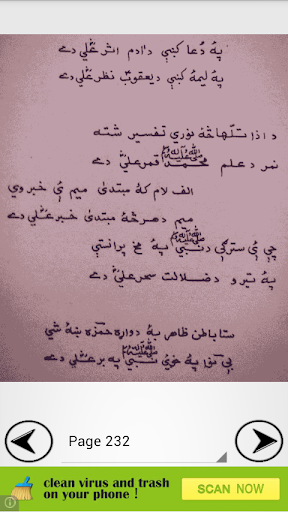 په دُعا کښې د ادم اثر علي دے
په ليمه کښې د يعقوبؑ نظر علي دے
د اذا تلٰها څه نورې تفسير شته
نمر د علم محمد ﷺ قمر عليؑ دے
الف لام که مبتدیٰ ميم ئې خبر وي
ميم د هر څه مبتدیٰ خبر علي دے
چې ئې سترګې د نبي ﷺ په مخ پرانتې
په تيرو د ضلالت سحر عليؑ دے
ستا باطن ظاهر په دواړه حمزه ښه شي
په خوئ نبي ﷺ په بر علي دے
Page 232
clean virus and trash
on your phone !
SCAN NOW